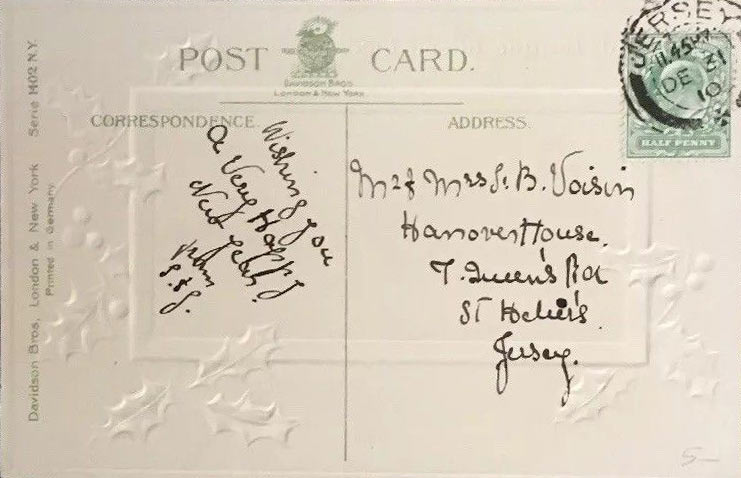 POST CARD.
DAVIDSON BROS.
LONDON & NEW YORK
CORRESPONDENCE.
Wishing you
a Very Happy
New Year.
from
ADDRESS.
Mr & Mrs S. B. Voisin
Hanover House.
7. Queen's Rd
St Helier's
Jersey.
JERSEY
11.45
DE 31
10
HALF PENNY
Davidson Bros, London & New York Serie 1402 N.Y.
Printed in Germany